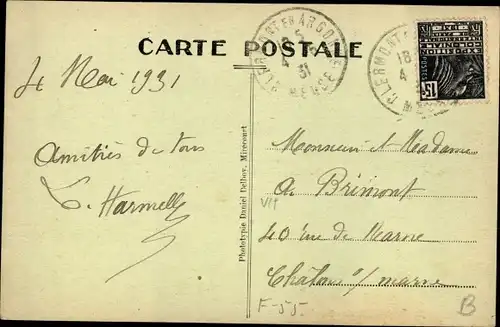 CARTE POSTALE
CLERMONT EN ARGONNE
18 5
4 - 5
31
MEUSE
CLERMONT
18
4
POSTES
15c
4 Mai 1931
Amitiés de tous
Harmelle
Phototypie Daniel Delboy, Mirecourt
Monsieur et Madame
de Brimont
VII
40 rue de Marne
Chalons s/ marne
F-55-
B